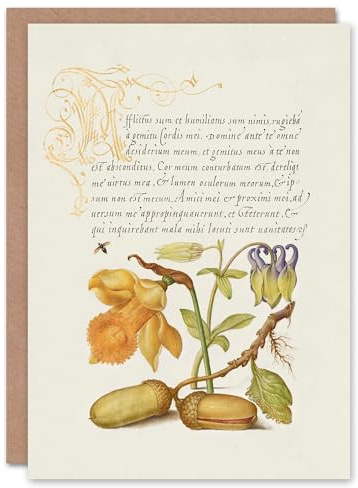 Afflictus sum et humiliatus sum nimis, rugieba
a gemitu Cordis mei. Domine ante te omne
desiderium meum, et gemitus meus a te non
est absconditus. Cor meum conturbatum est, dereliqt
me virtus mea, & lumen oculorum meorum, & ip-
sum non est mecum. Amici mei & proximi mei, ad
versum me appropinquauerunt, et steterunt. &
qui inquirebant mala mihi locuti sunt uanitates